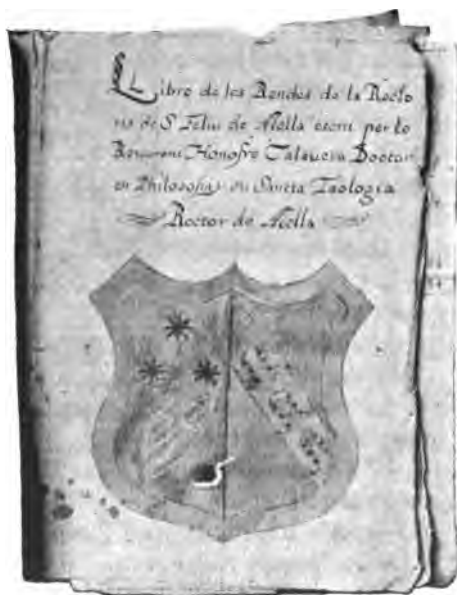 Llibre de les Rendes de la Recto
ria de S. Feliu de Alella escrit per lo
Reverent Honofre Talavera Doctor
en Philosofia y en Sancta Teologia
Rector de Alella